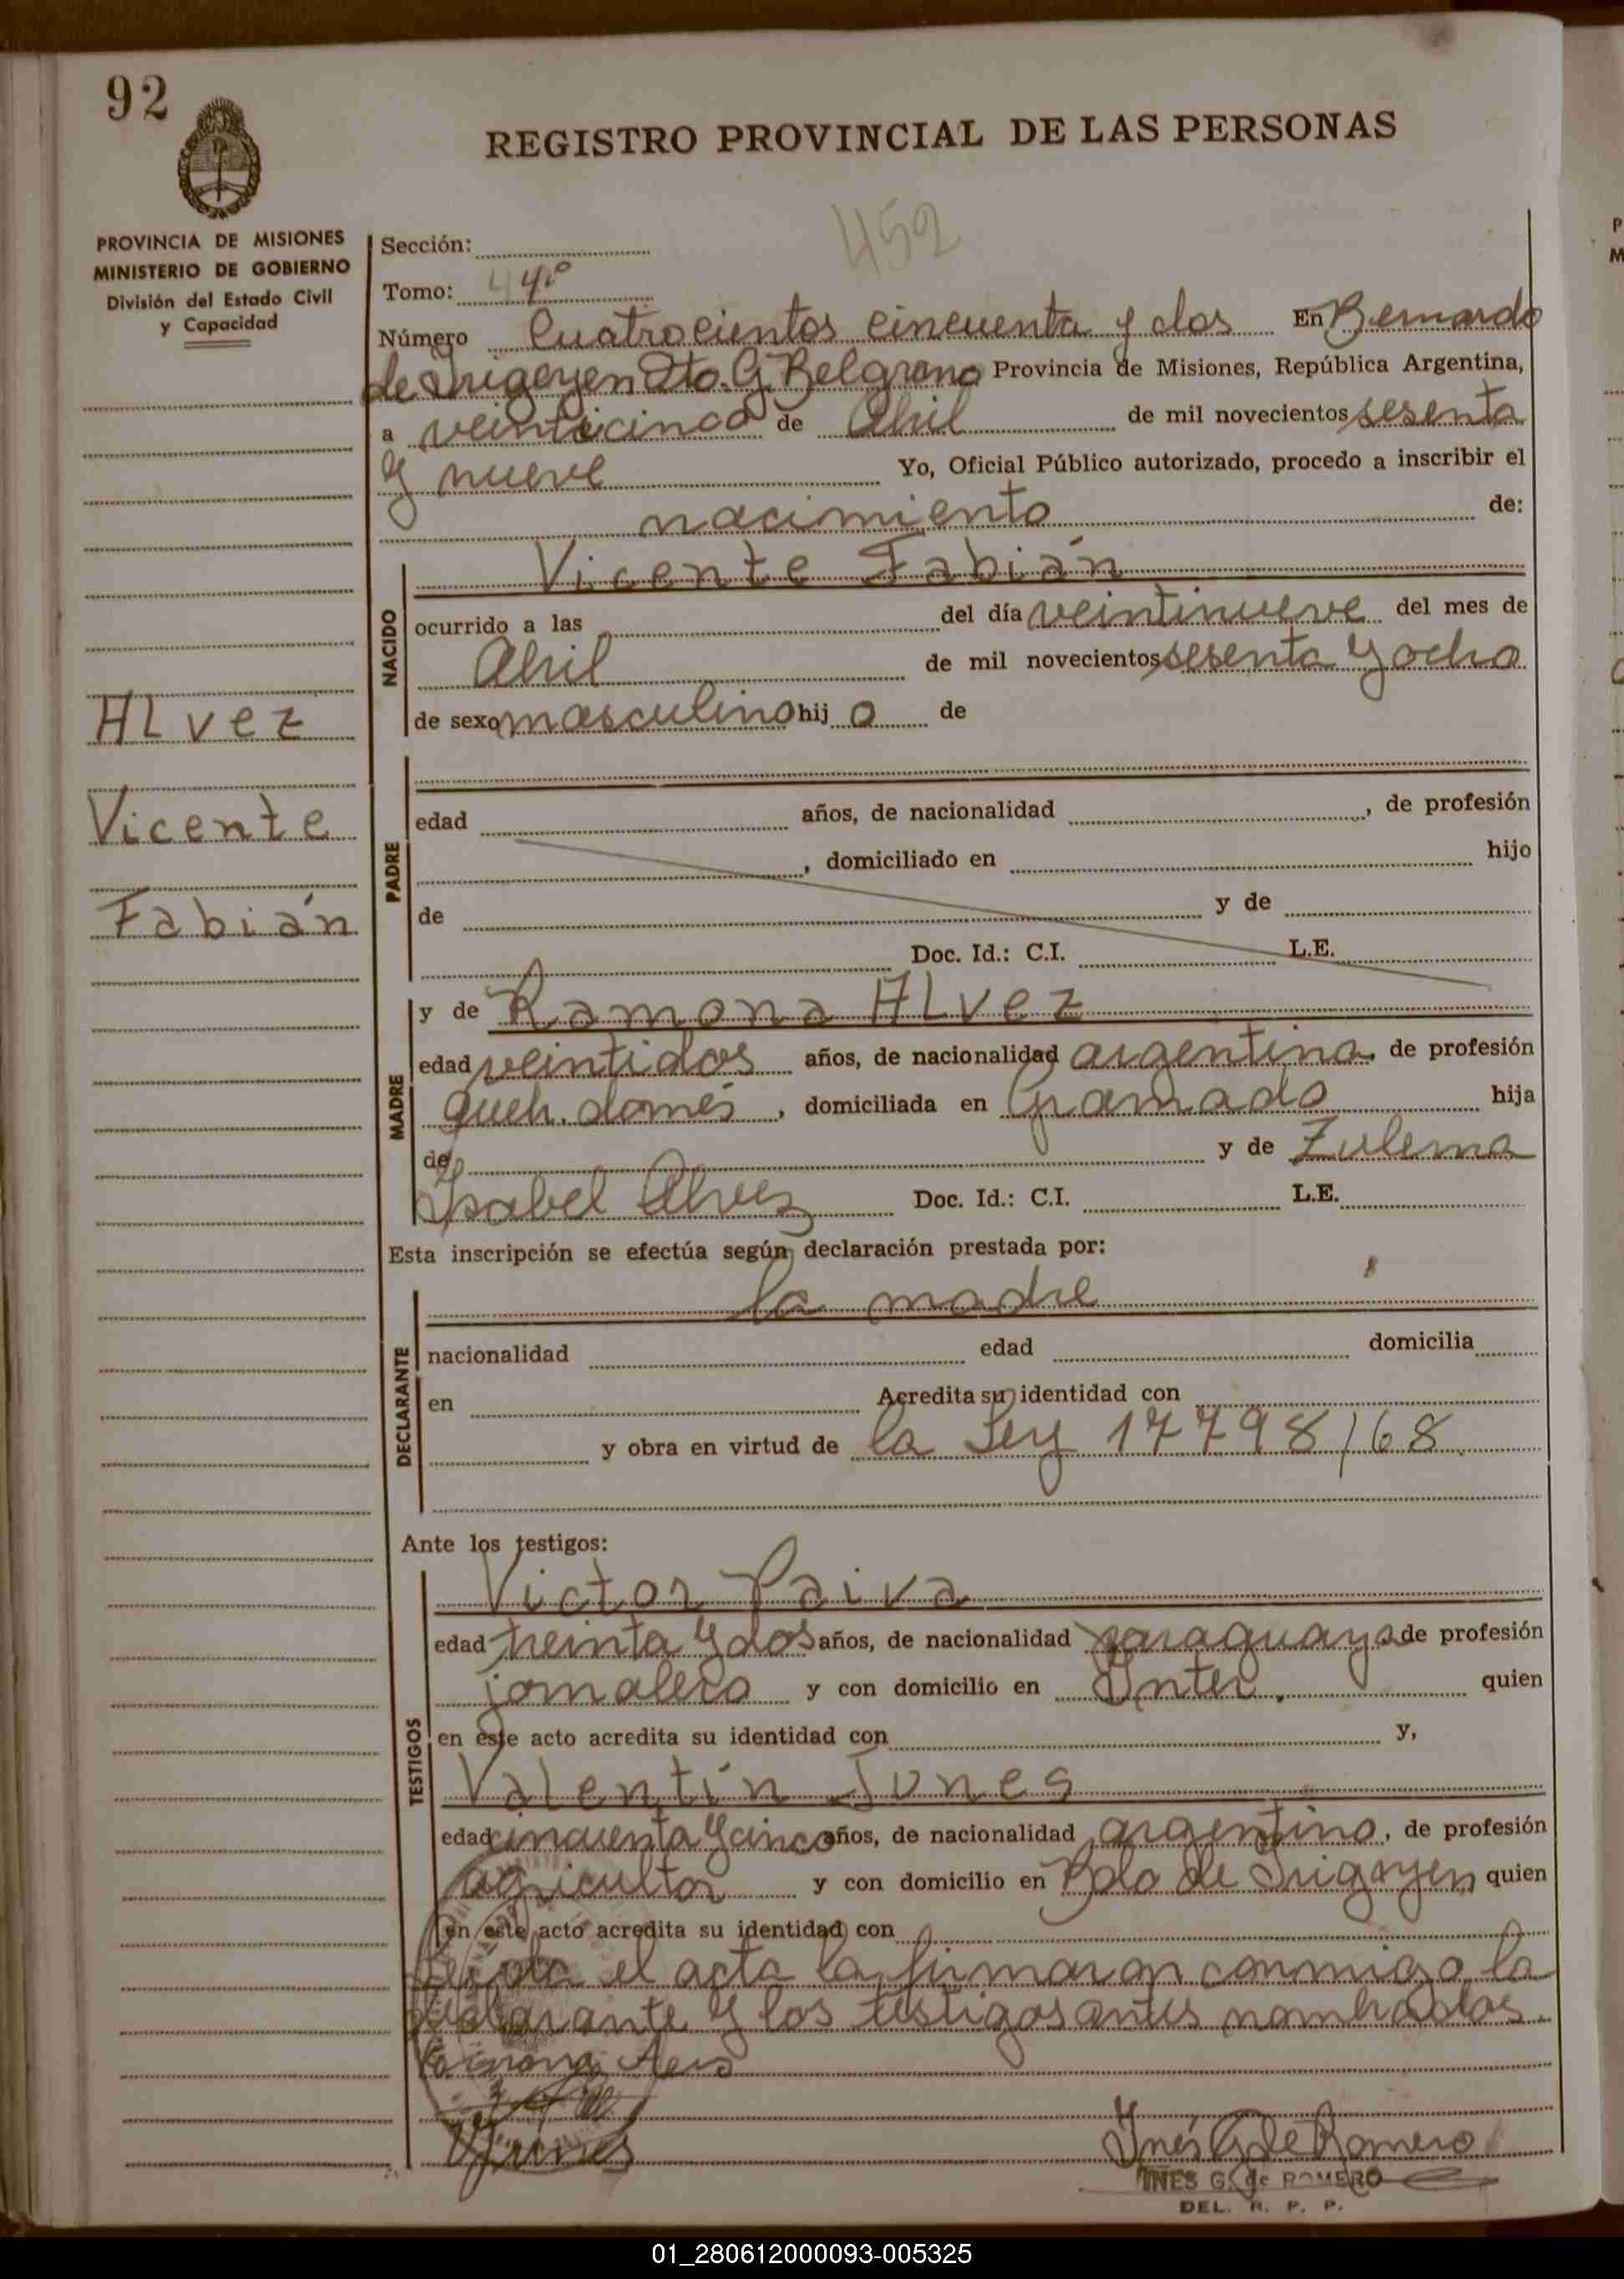 92
REGISTRO PROVINCIAL DE LAS PERSONAS
452
PROVINCIA DE MISIONES
MINISTERIO DE GOBIERNO
División del Estado Civil
y Capacidad
Sección:
Tomo: 4º
Número Cuatrocientos cincuenta y dos En Bernardo
de Irigoyen Dto. G. Belgrano Provincia de Misiones, República Argentina,
a veinticinco de Abril de mil novecientos sesenta
y nueve Yo, Oficial Público autorizado, procedo a inscribir el
nacimiento de:
NACIDO
Vicente Fabián
ocurrido a las del día veintinueve del mes de
Abril de mil novecientos sesenta y ocho
de sexo masculino hij o de
ALvez
Vicente
Fabián
PADRE
edad años, de nacionalidad , de profesión
, domiciliado en hijo
de y de
Doc. Id.: C.I. L.E.
MADRE
y de Ramona ALvez
edad veintidos años, de nacionalidad argentina, de profesión
queh. domés , domiciliada en Gramado hija
de y de Zulema
Isabel Alvez Doc. Id.: C.I. L.E.
Esta inscripción se efectúa según declaración prestada por:
DECLARANTE
la madre
nacionalidad edad domicilia
en Acredita su identidad con
y obra en virtud de la Ley 17798/68
Ante los testigos:
TESTIGOS
Victor Paiva
edad treinta y dos años, de nacionalidad paraguaya de profesión
jornalero y con domicilio en Inter. quien
en este acto acredita su identidad con y,
Valentín Junes
edad cincuenta y cinco años, de nacionalidad argentino, de profesión
agricultor y con domicilio en Bdo de Irigoyen quien
en este acto acredita su identidad con
Leida el acta la firmaron conmigo la
declarante y los testigos antes nombrados.
Ramona
Inés G de Romero
INES G. de ROMERO
DEL. R. P. P.
01_280612000093-005325